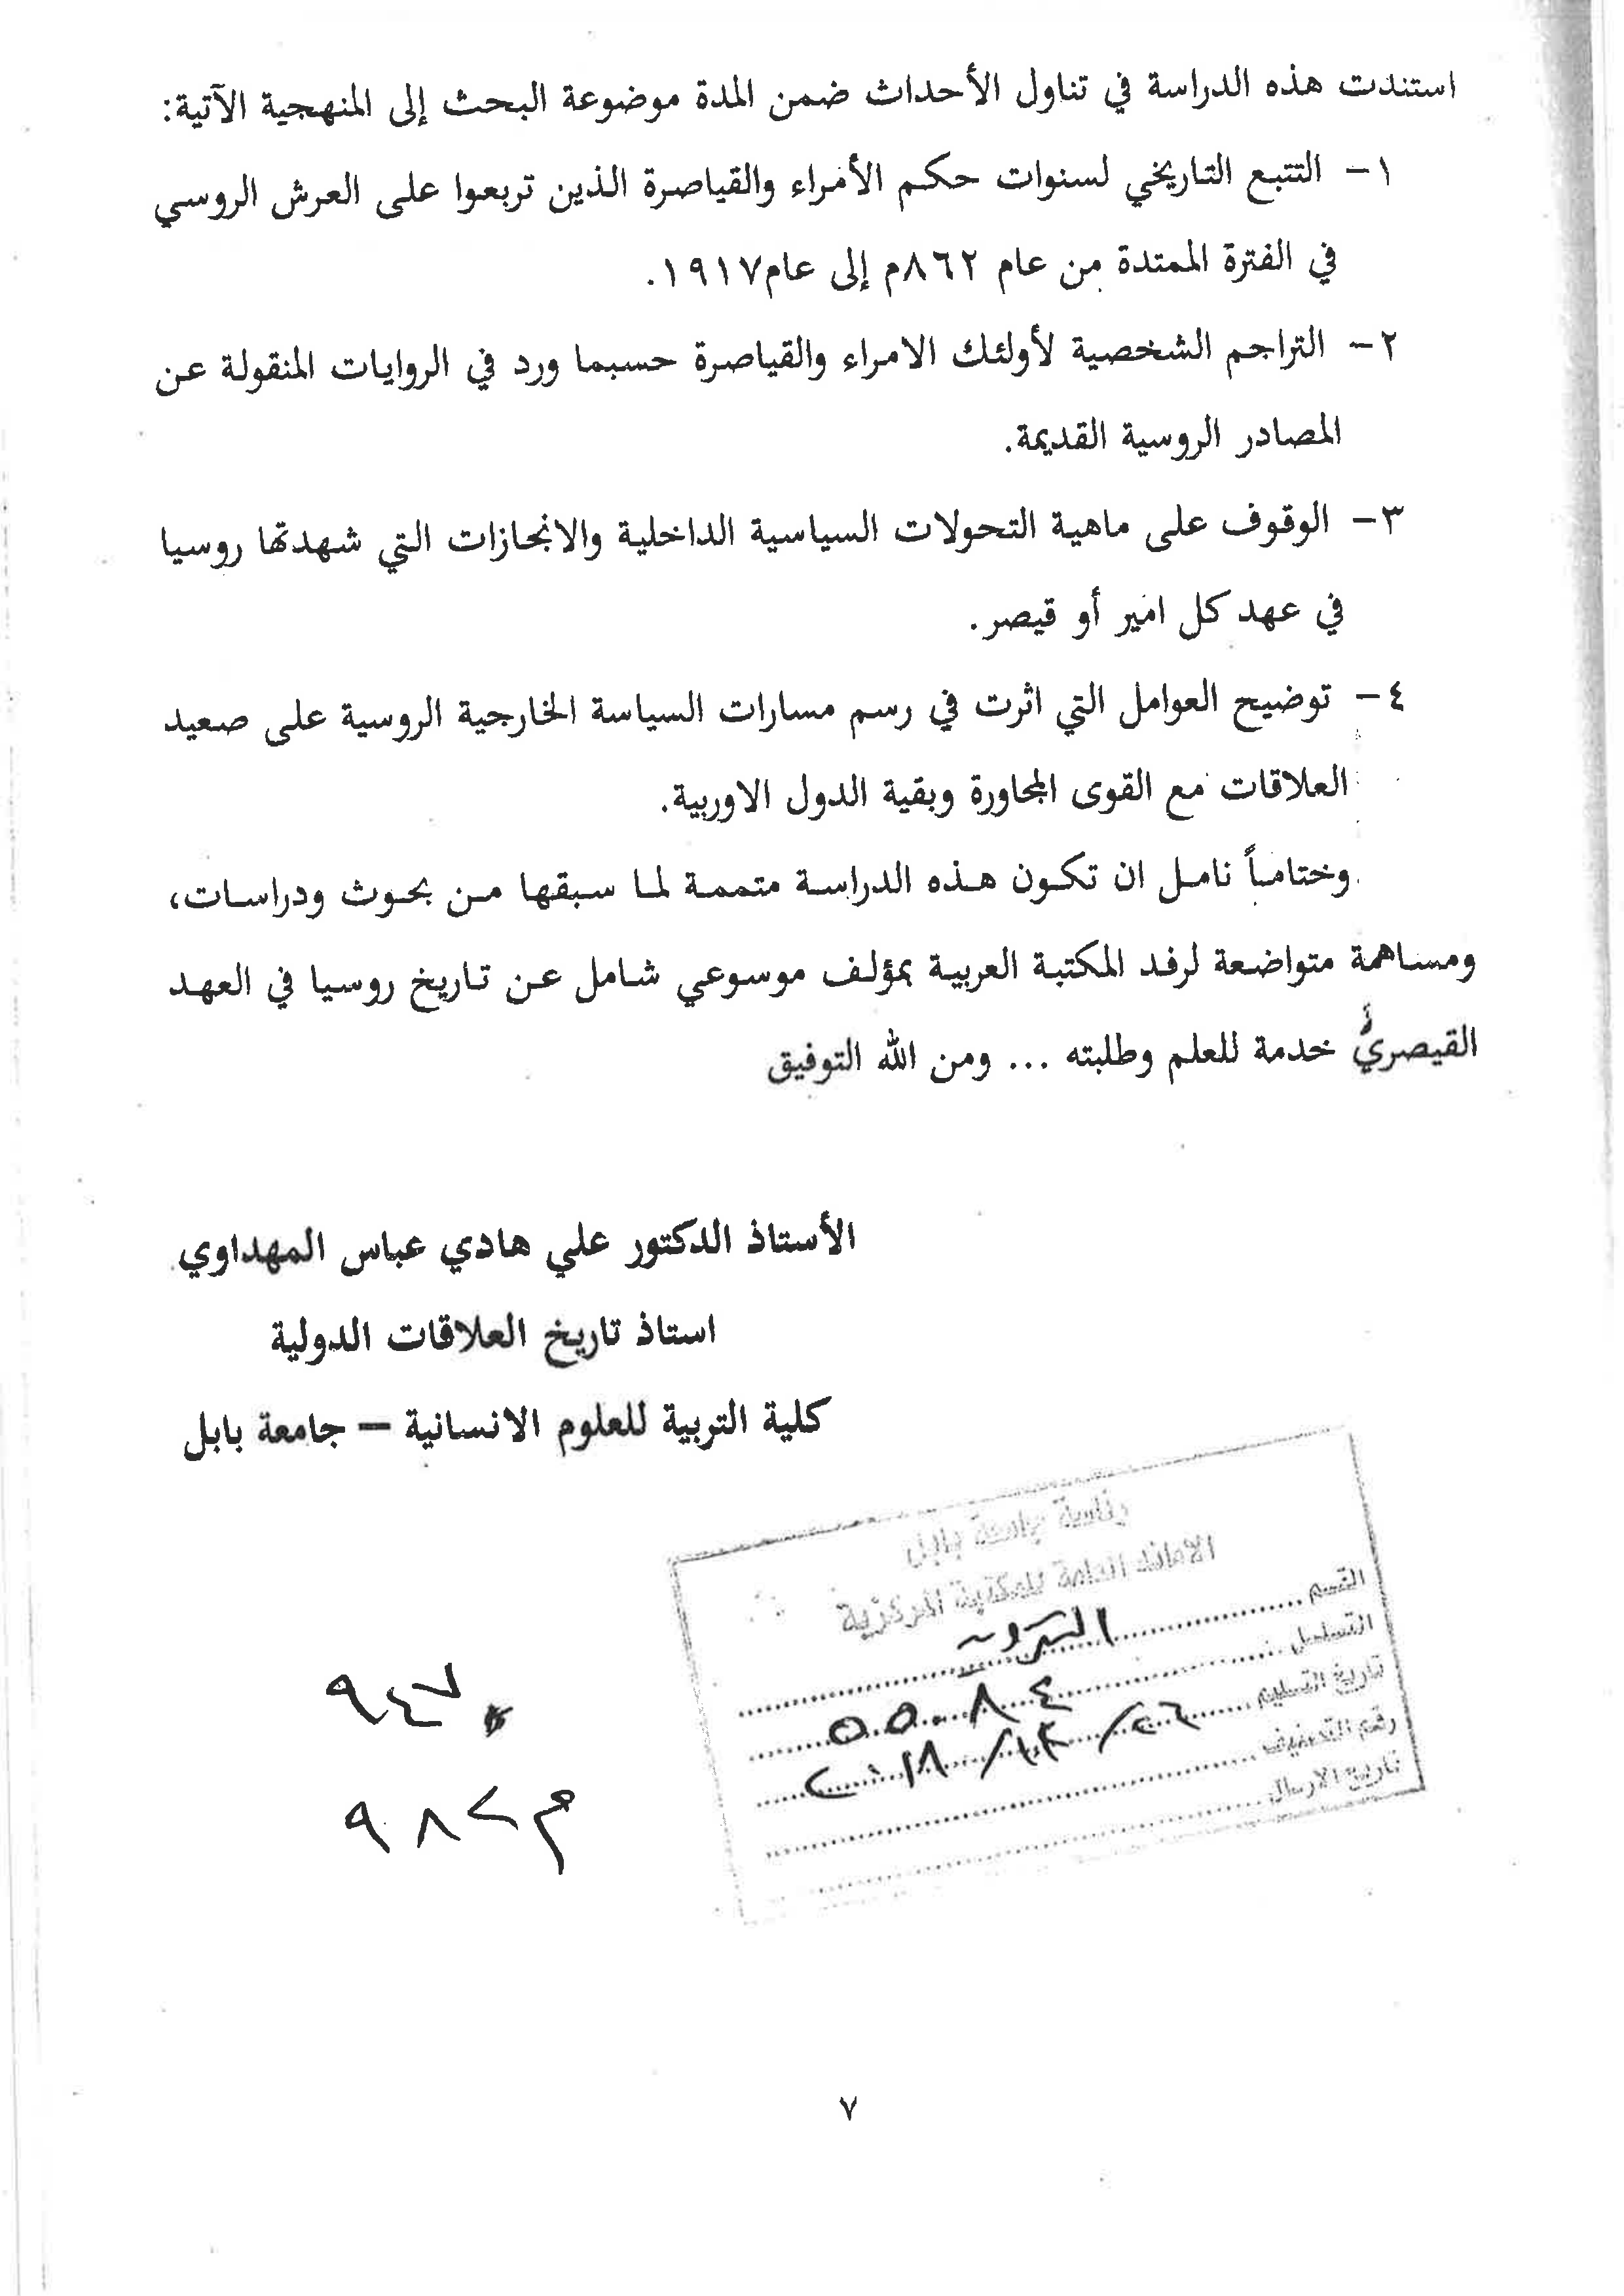 استندت هذه الدراسة في تناول الأحداث ضمن المدة موضوعة البحث إلى المنهجية الآتية:
١- التتبع التاريخي لسنوات حكم الأمراء والقياصرة الذين تربعوا على العرش الروسي
في الفترة الممتدة من عام ٨٦٢م إلى عام١٩١٧.
٢- التراجم الشخصية لأولئك الامراء والقياصرة حسبما ورد في الروايات المنقولة عن
المصادر الروسية القديمة.
٣- الوقوف على ماهية التحولات السياسية الداخلية والانجازات التي شهدتها روسيا
في عهد كل امير أو قيصر.
٤- توضيح العوامل التي اثرت في رسم مسارات السياسة الخارجية الروسية على صعيد
العلاقات مع القوى المجاورة وبقية الدول الاوربية.
وختاماً نامل ان تكون هذه الدراسة متممة لما سبقها من بحوث ودراسات،
ومساهمة متواضعة لرفد المكتبة العربية بمؤلف موسوعي شامل عن تاريخ روسيا في العهد
القيصري خدمة للعلم وطلبته ... ومن الله التوفيق
الأستاذ الدكتور علي هادي عباس المهداوي
استاذ تاريخ العلاقات الدولية
كلية التربية للعلوم الانسانية – جامعة بابل
رئاسة جامعة بابل
الامانة العامة للمكتبة المركزية
القسم
التسلسل ٥٥٠٨٤
تاريخ التسليم ٢٦/١٢/٢٠١٨
رقم التصنيف
تاريخ الارسال
٩٤٧
م٩٨٧
٧